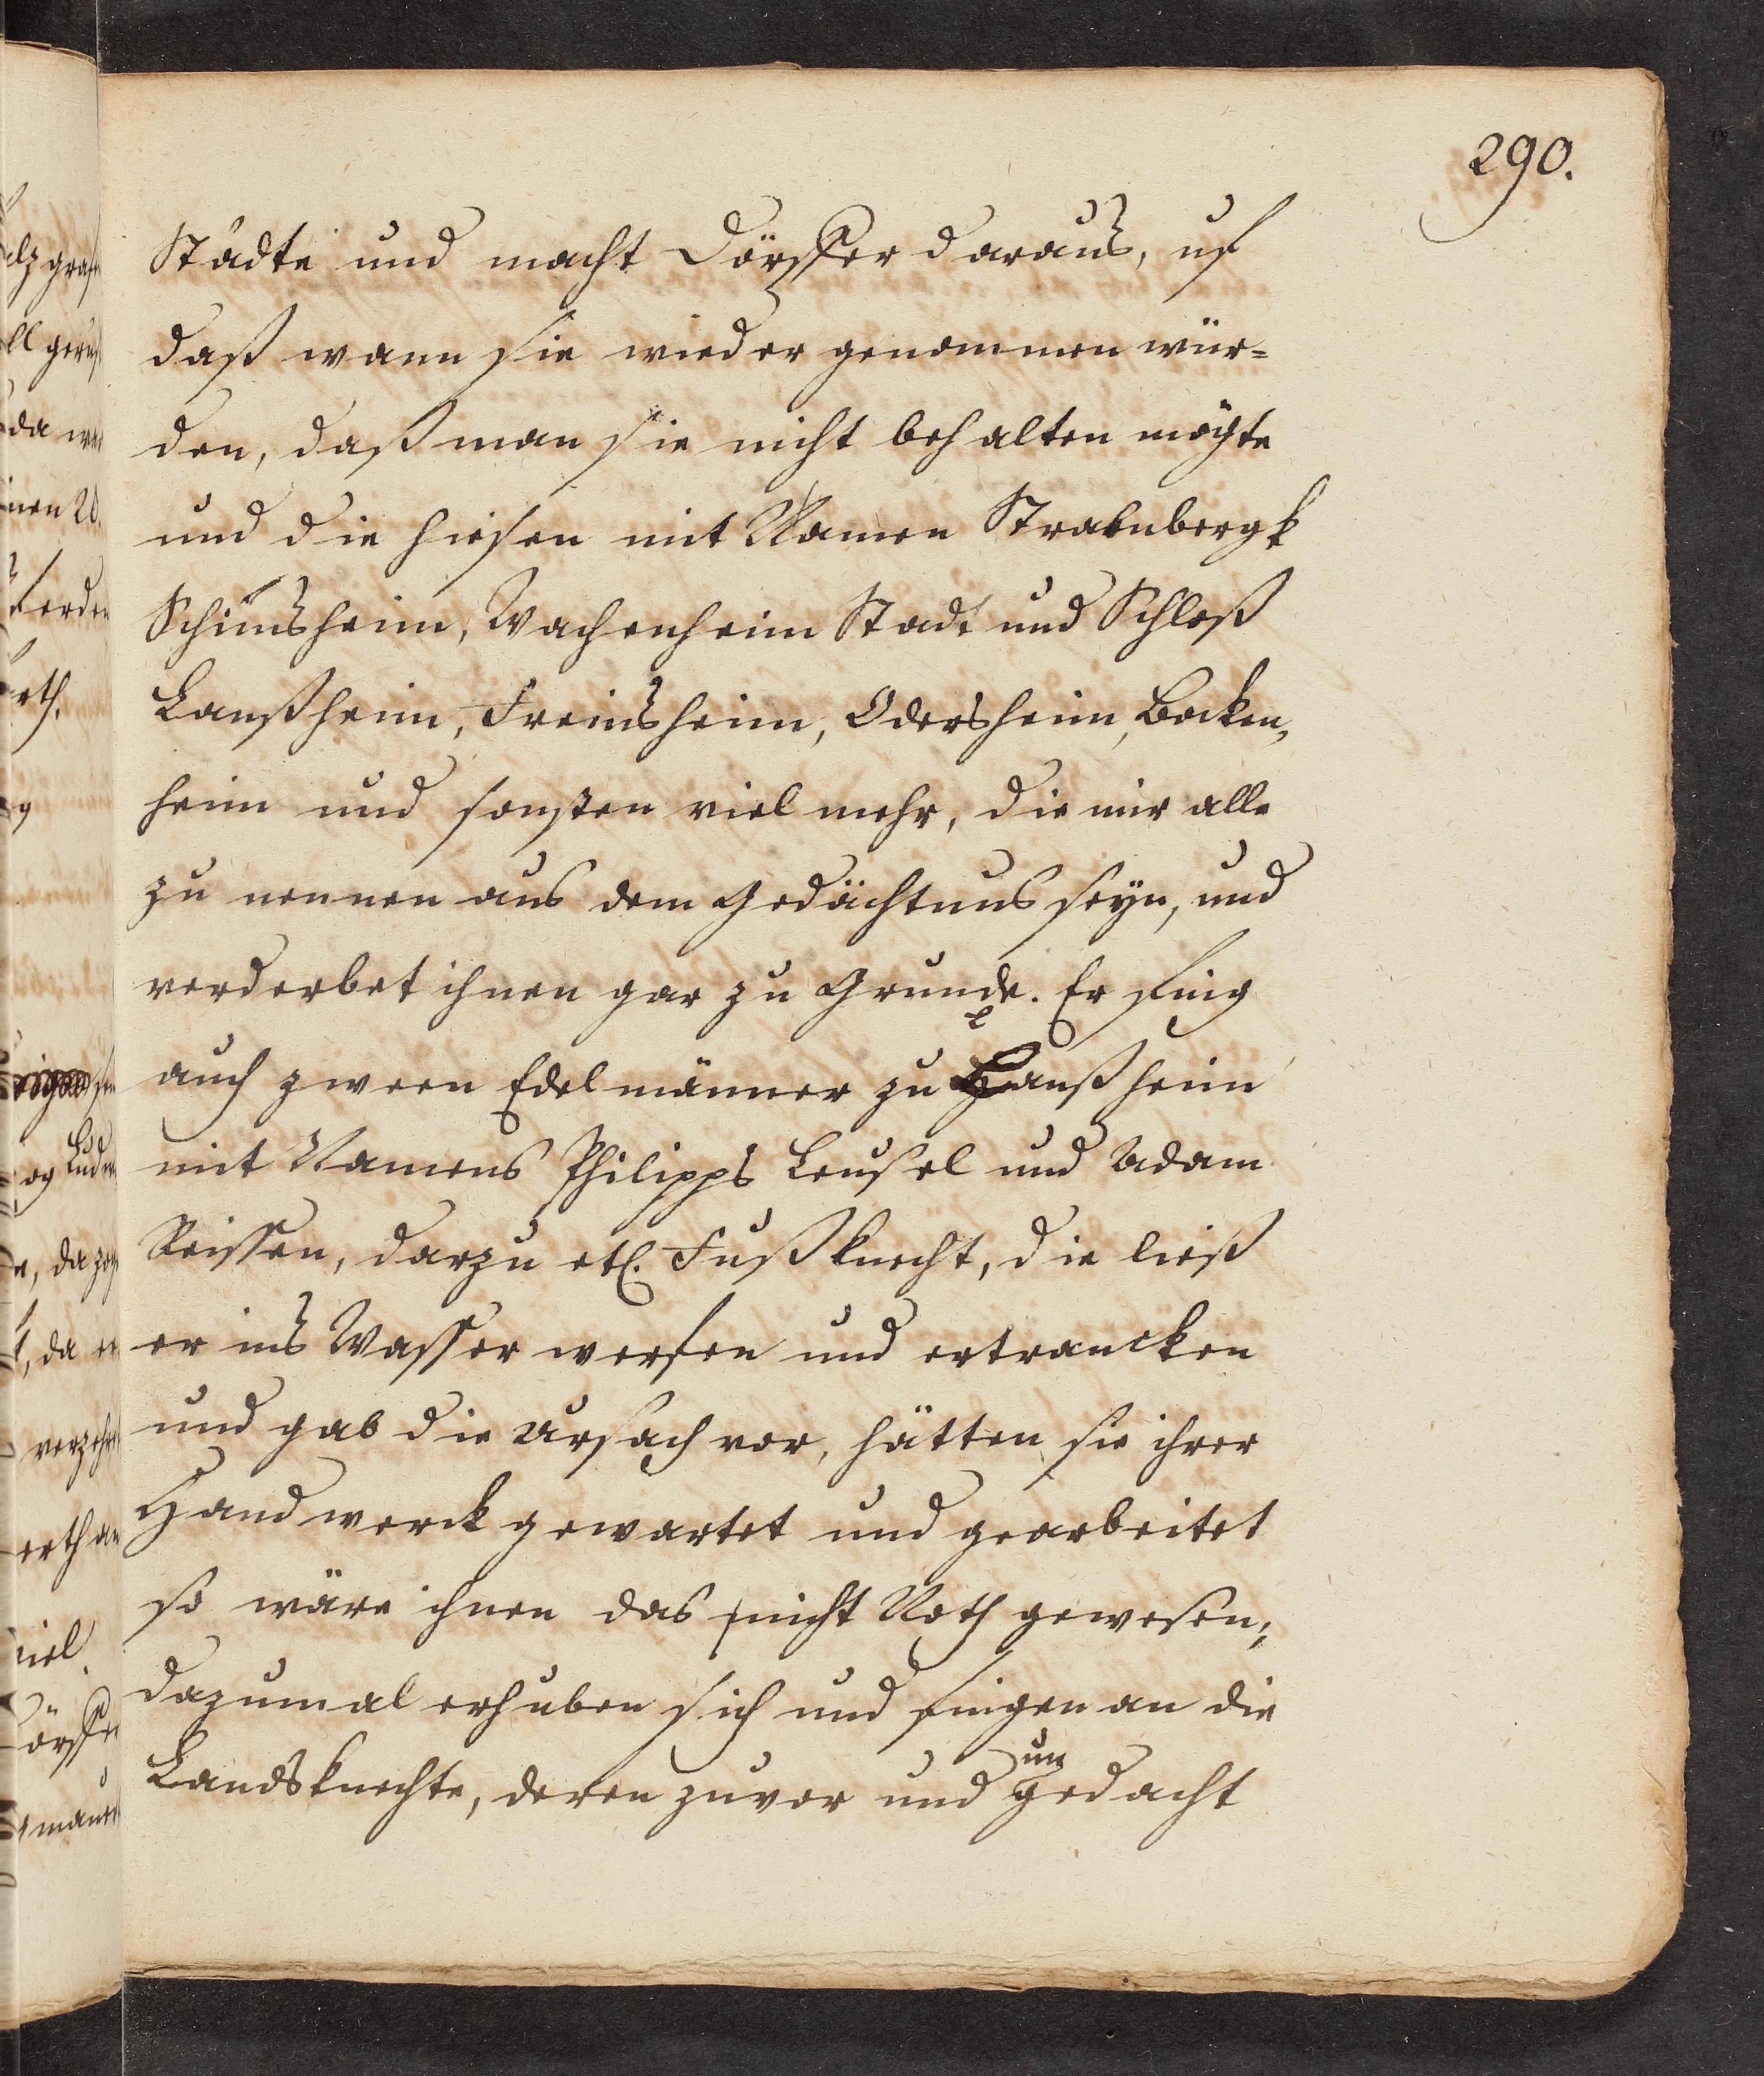 290.
Städte und macht Dörffer daraus, uf
daß wann sie wieder genommen wür-
den, daß man sie nicht behalten mögte
und die hiesen mit Namen Stralnbergk
Schimsheim, Wachenheim Stadt und Schloß
Lanßheim, Freinsheim, Odersheim, Bocken,
heim und sonsten viel mehr, die mir alle
zu nennen aus dem Gedächtnus seyn, und
verderbet ihnen gar zu Grunde. Er fing
auch zween Edelmänner zu Lanßheim
mit Namens Philipps Leusel und Adam
Reissen, darzu etl. Fußknecht, die ließ
er ins Wasser werfen und ertrancken
und gab die Ursach vor, hätten sie ihrer
Handwerck gewartet und gearbeitet
so wäre ihnen das nicht Noth gewesen;
dazumal erhuben sich und fingen an die
Landsknechte, deren zuvor und un gedacht